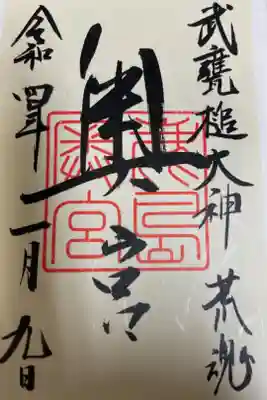 武甕槌大神 荒魂
奧宮
鹿島
奥宮
令和四年二月九日